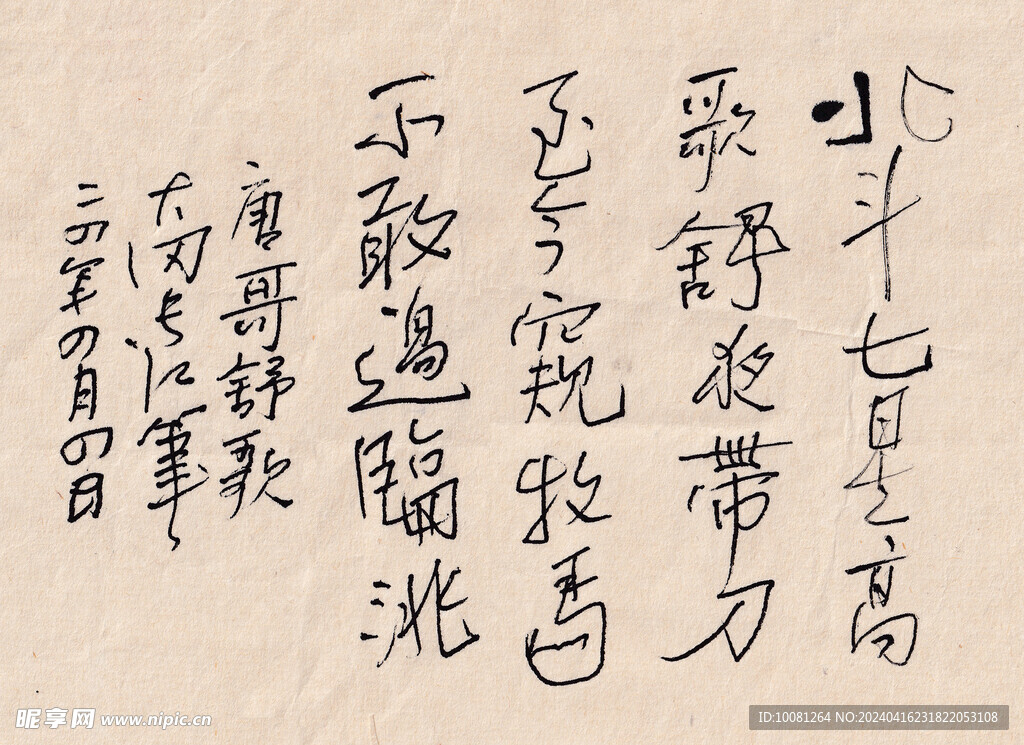 北斗七星高
歌舒夜帶刀
至今窺牧馬
不敢過臨洮
唐哥舒歌
大 长江筆
二四年四月四日
昵享网 www.nipic.cn
ID:10081264 NO:20240416231822053108